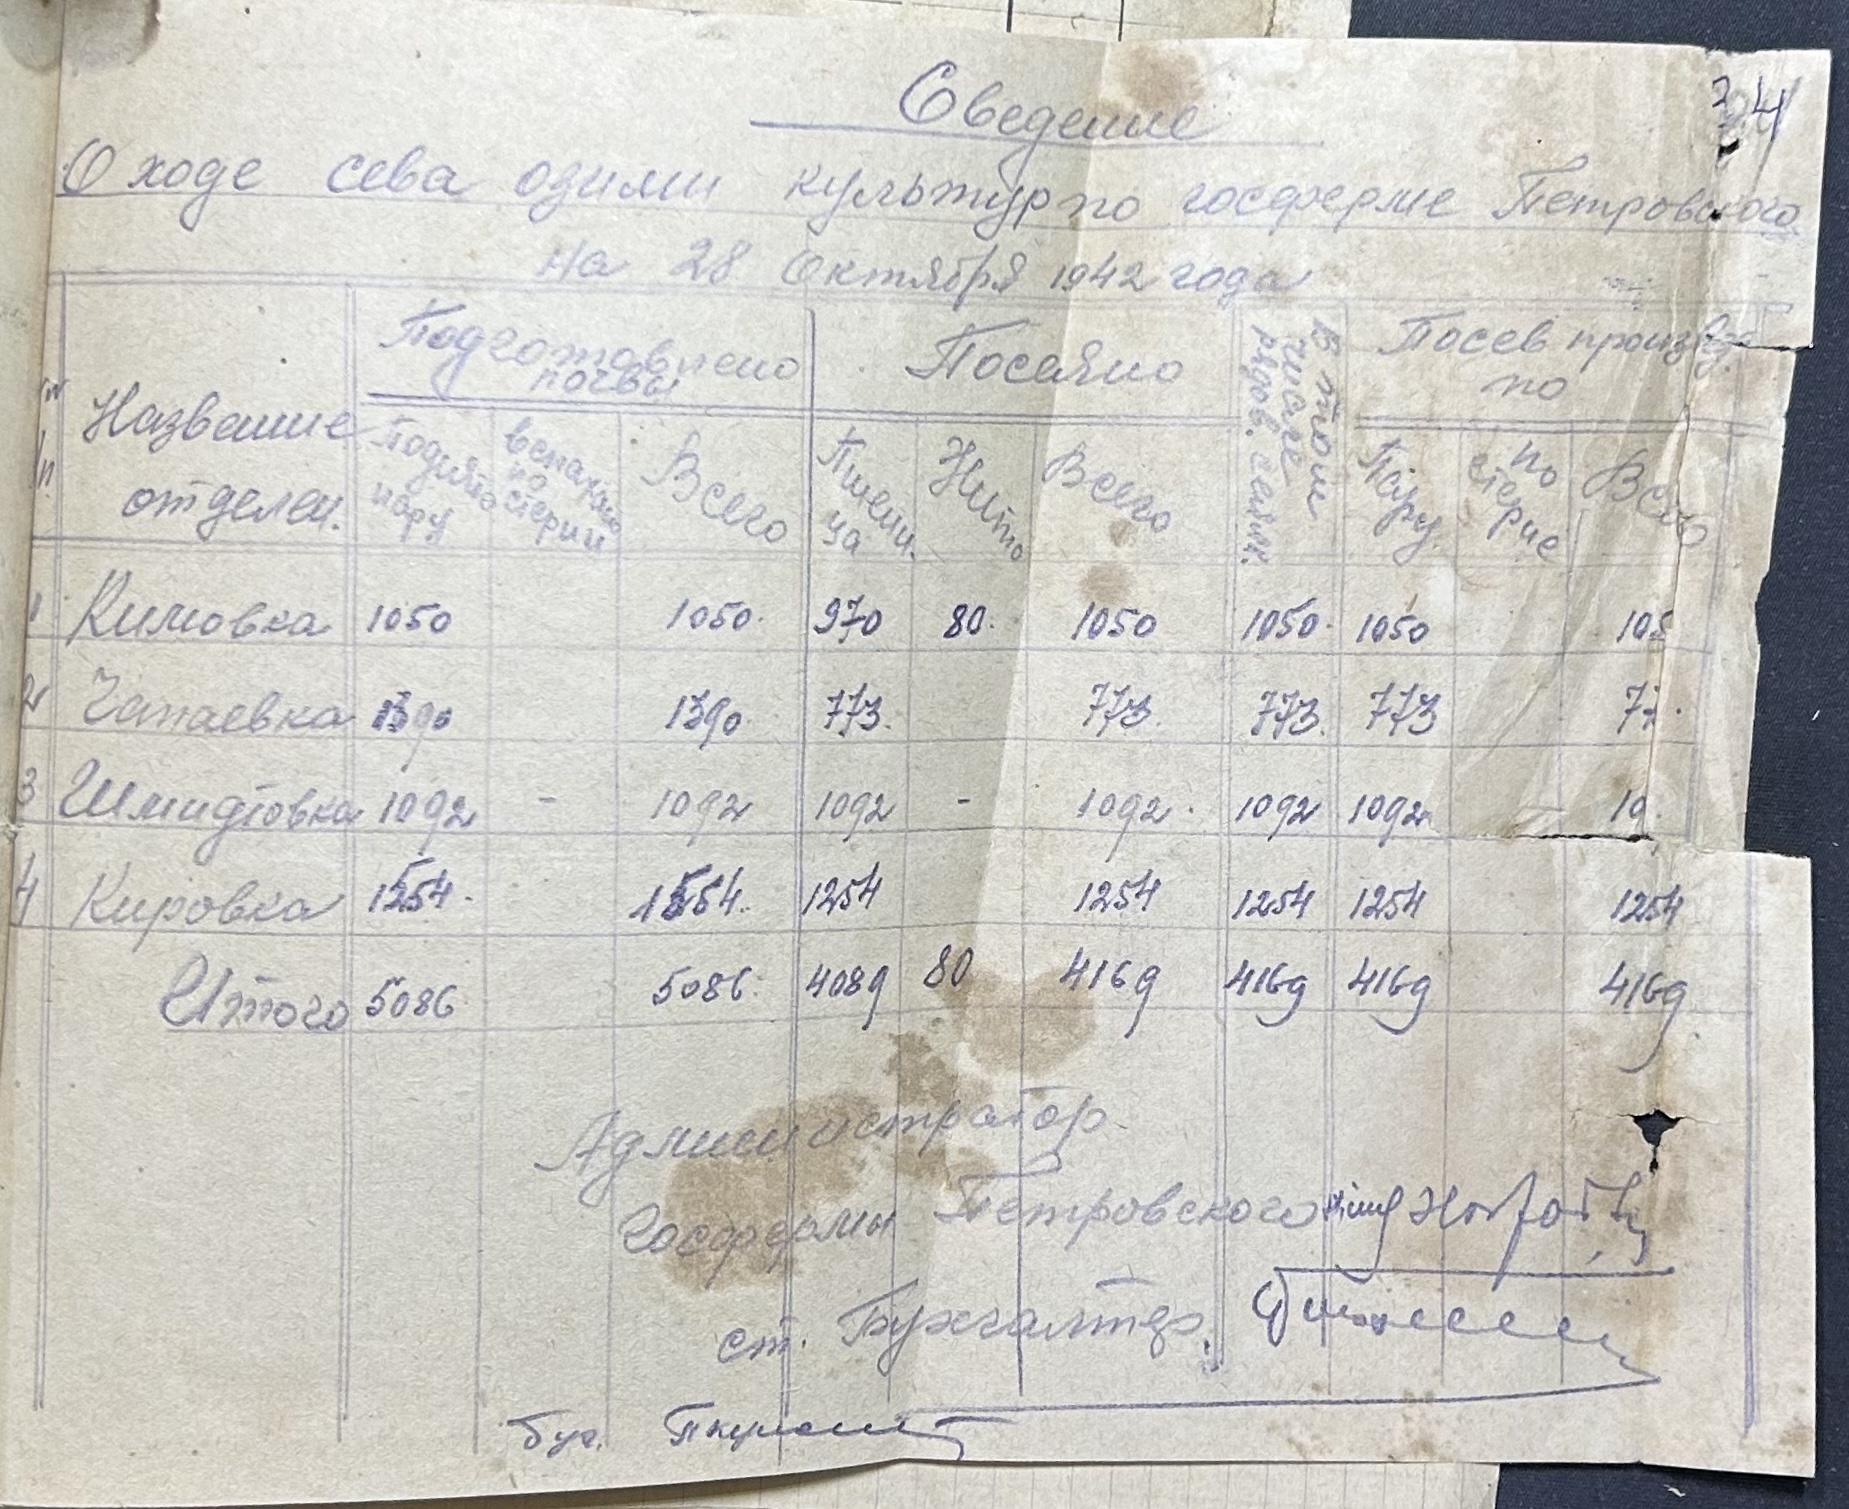 Сведение
О ходе сева озими культур по госферме Петровского
на 28 Октября 1942 года
Название отделен.
Подготовлено почвы
Посеяно
В том числе рядов. сеялк.
Посев произвед. по
поднято пару
вспахано по стерни
Всего
Пшени-ца
Жито
Всего
Пару
по стерне
Всего
1 Кимовка 1050 1050. 970 80. 1050 1050. 1050 105
2 Чапаевка 1390 1390. 773. 773. 773. 773 77
3 Шмидтовка 1092 - 1092 1092 - 1092. 1092 1092 10
4 Кировка 1554. 1554. 1254 1254 1254 1254 1254
Итого 5086 5086. 4089 80 4169 4169 4169 4169
Администратор
Госфермы Петровского
ст. Бухгалтер.
бух.